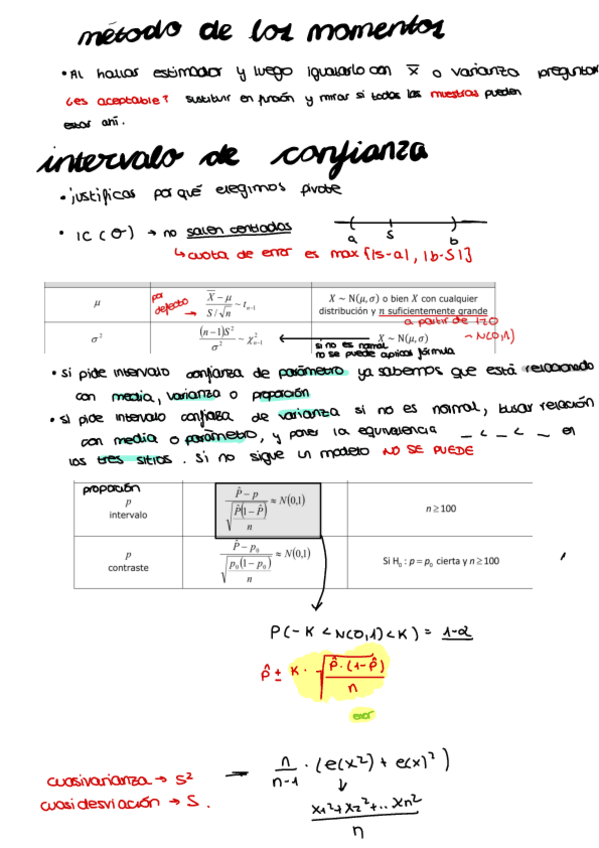 método de los momentos
• Al hallar estimador y luego igualarlo con x̄ o varianza preguntar
¿es aceptable? sustituir en función y mirar si todas las muestras pueden
estar ahí.
intervalo de confianza
• justificas por qué elegimos pivote
• IC (σ) → no salen centrados
a s b
↳ cuota de error es max {|s-a|, |b-s|}
μ
por defecto →
X̄ − μ / S/√n ~ t n−1
X ~ N(μ,σ) o bien X con cualquier
distribución y n suficientemente grande
a partir de 120
~ N(0,1)
σ²
(n−1)S² / σ² ~ χ² n−1
X ~ N(μ,σ)
si no es normal
no se puede aplicar fórmula
• Si pide intervalo confianza de parámetro ya sabemos que está relacionado
con media, varianza o proporción
• Si pide intervalo confianza de varianza si no es normal, buscar relación
con media o parámetro, y poner la equivalencia _ < _ < _ en
los tres sitios. Si no sigue un modelo NO SE PUEDE
proporción
p
intervalo
P̂ − p / √(P̂(1−P̂) / n) ≈ N(0,1)
n ≥ 100
p
contraste
P̂ − p₀ / √(p₀(1−p₀) / n) ≈ N(0,1)
Si H₀ : p = p₀ cierta y n ≥ 100
P(-K < N(0,1) < K) = 1-α
p̂ ± K · √(p̂·(1-p̂) / n)
error
cuasivarianza → S²
cuasidesviación → S.
— n / n-1 · (e(x²) + e(x)²)
x₁²+x₂²+.. xn² / n